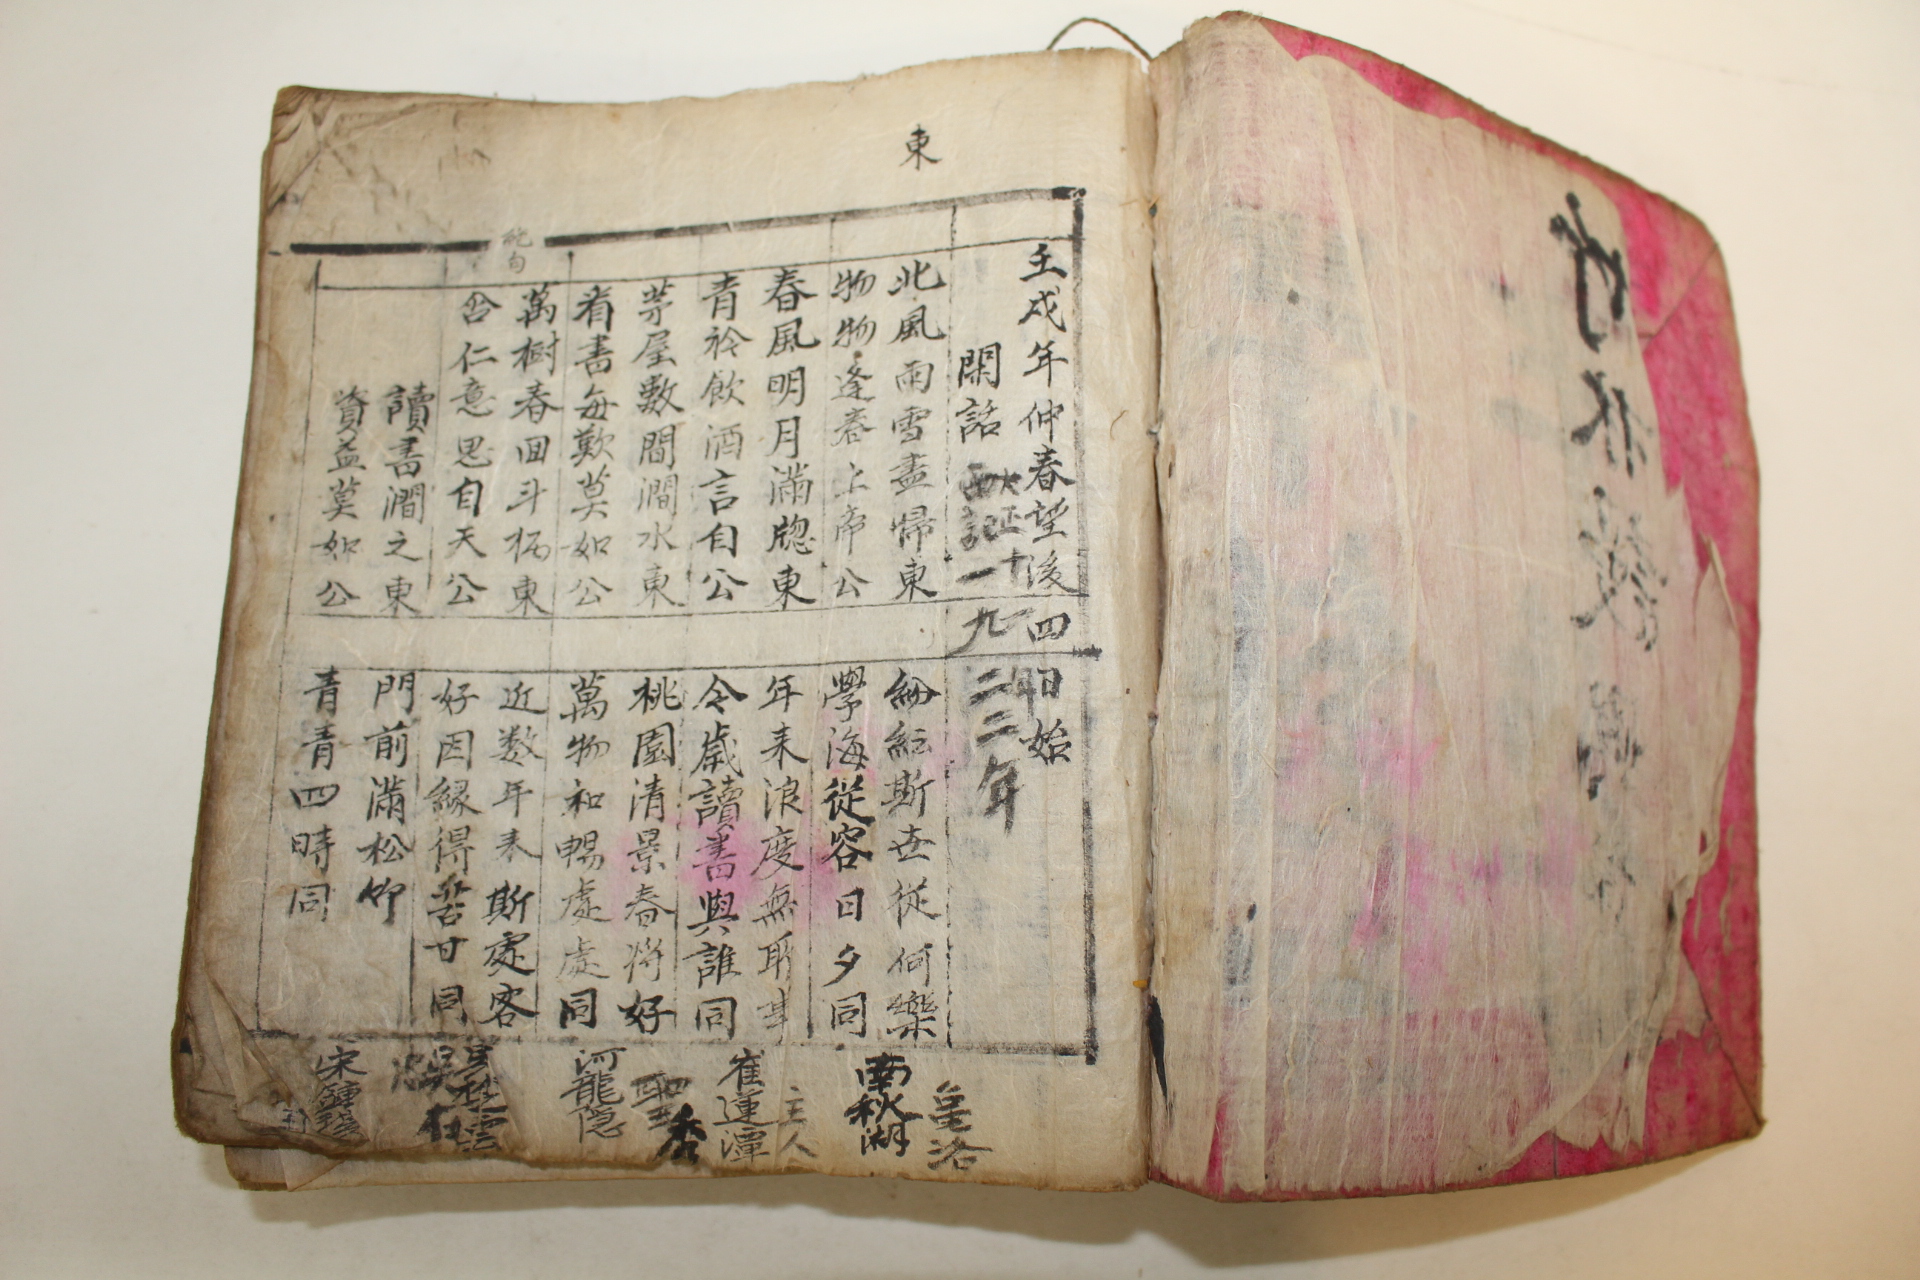 東
壬戌年仲春望後四日始
閑話
大正十一
一九二二年
北風雨雪盡歸東
物物逢春上帝公
紛紜斯世從何樂
學海從容日夕同
南秋湖
春風明月滿牕東
青衿飮酒言自公
年來浪度無所事
今歲讀書與誰同
主人
崔蓮潭
茅屋數間澗水東
看書每歎莫如公
桃園清景春將好
萬物和暢處處同
河龍隐
絶句
萬樹春回斗柄東
含仁意思自天公
近数年來斯處客
好因緣得苦甘同
讀書澗之東
資益莫如公
門前滿松竹
青青四時同